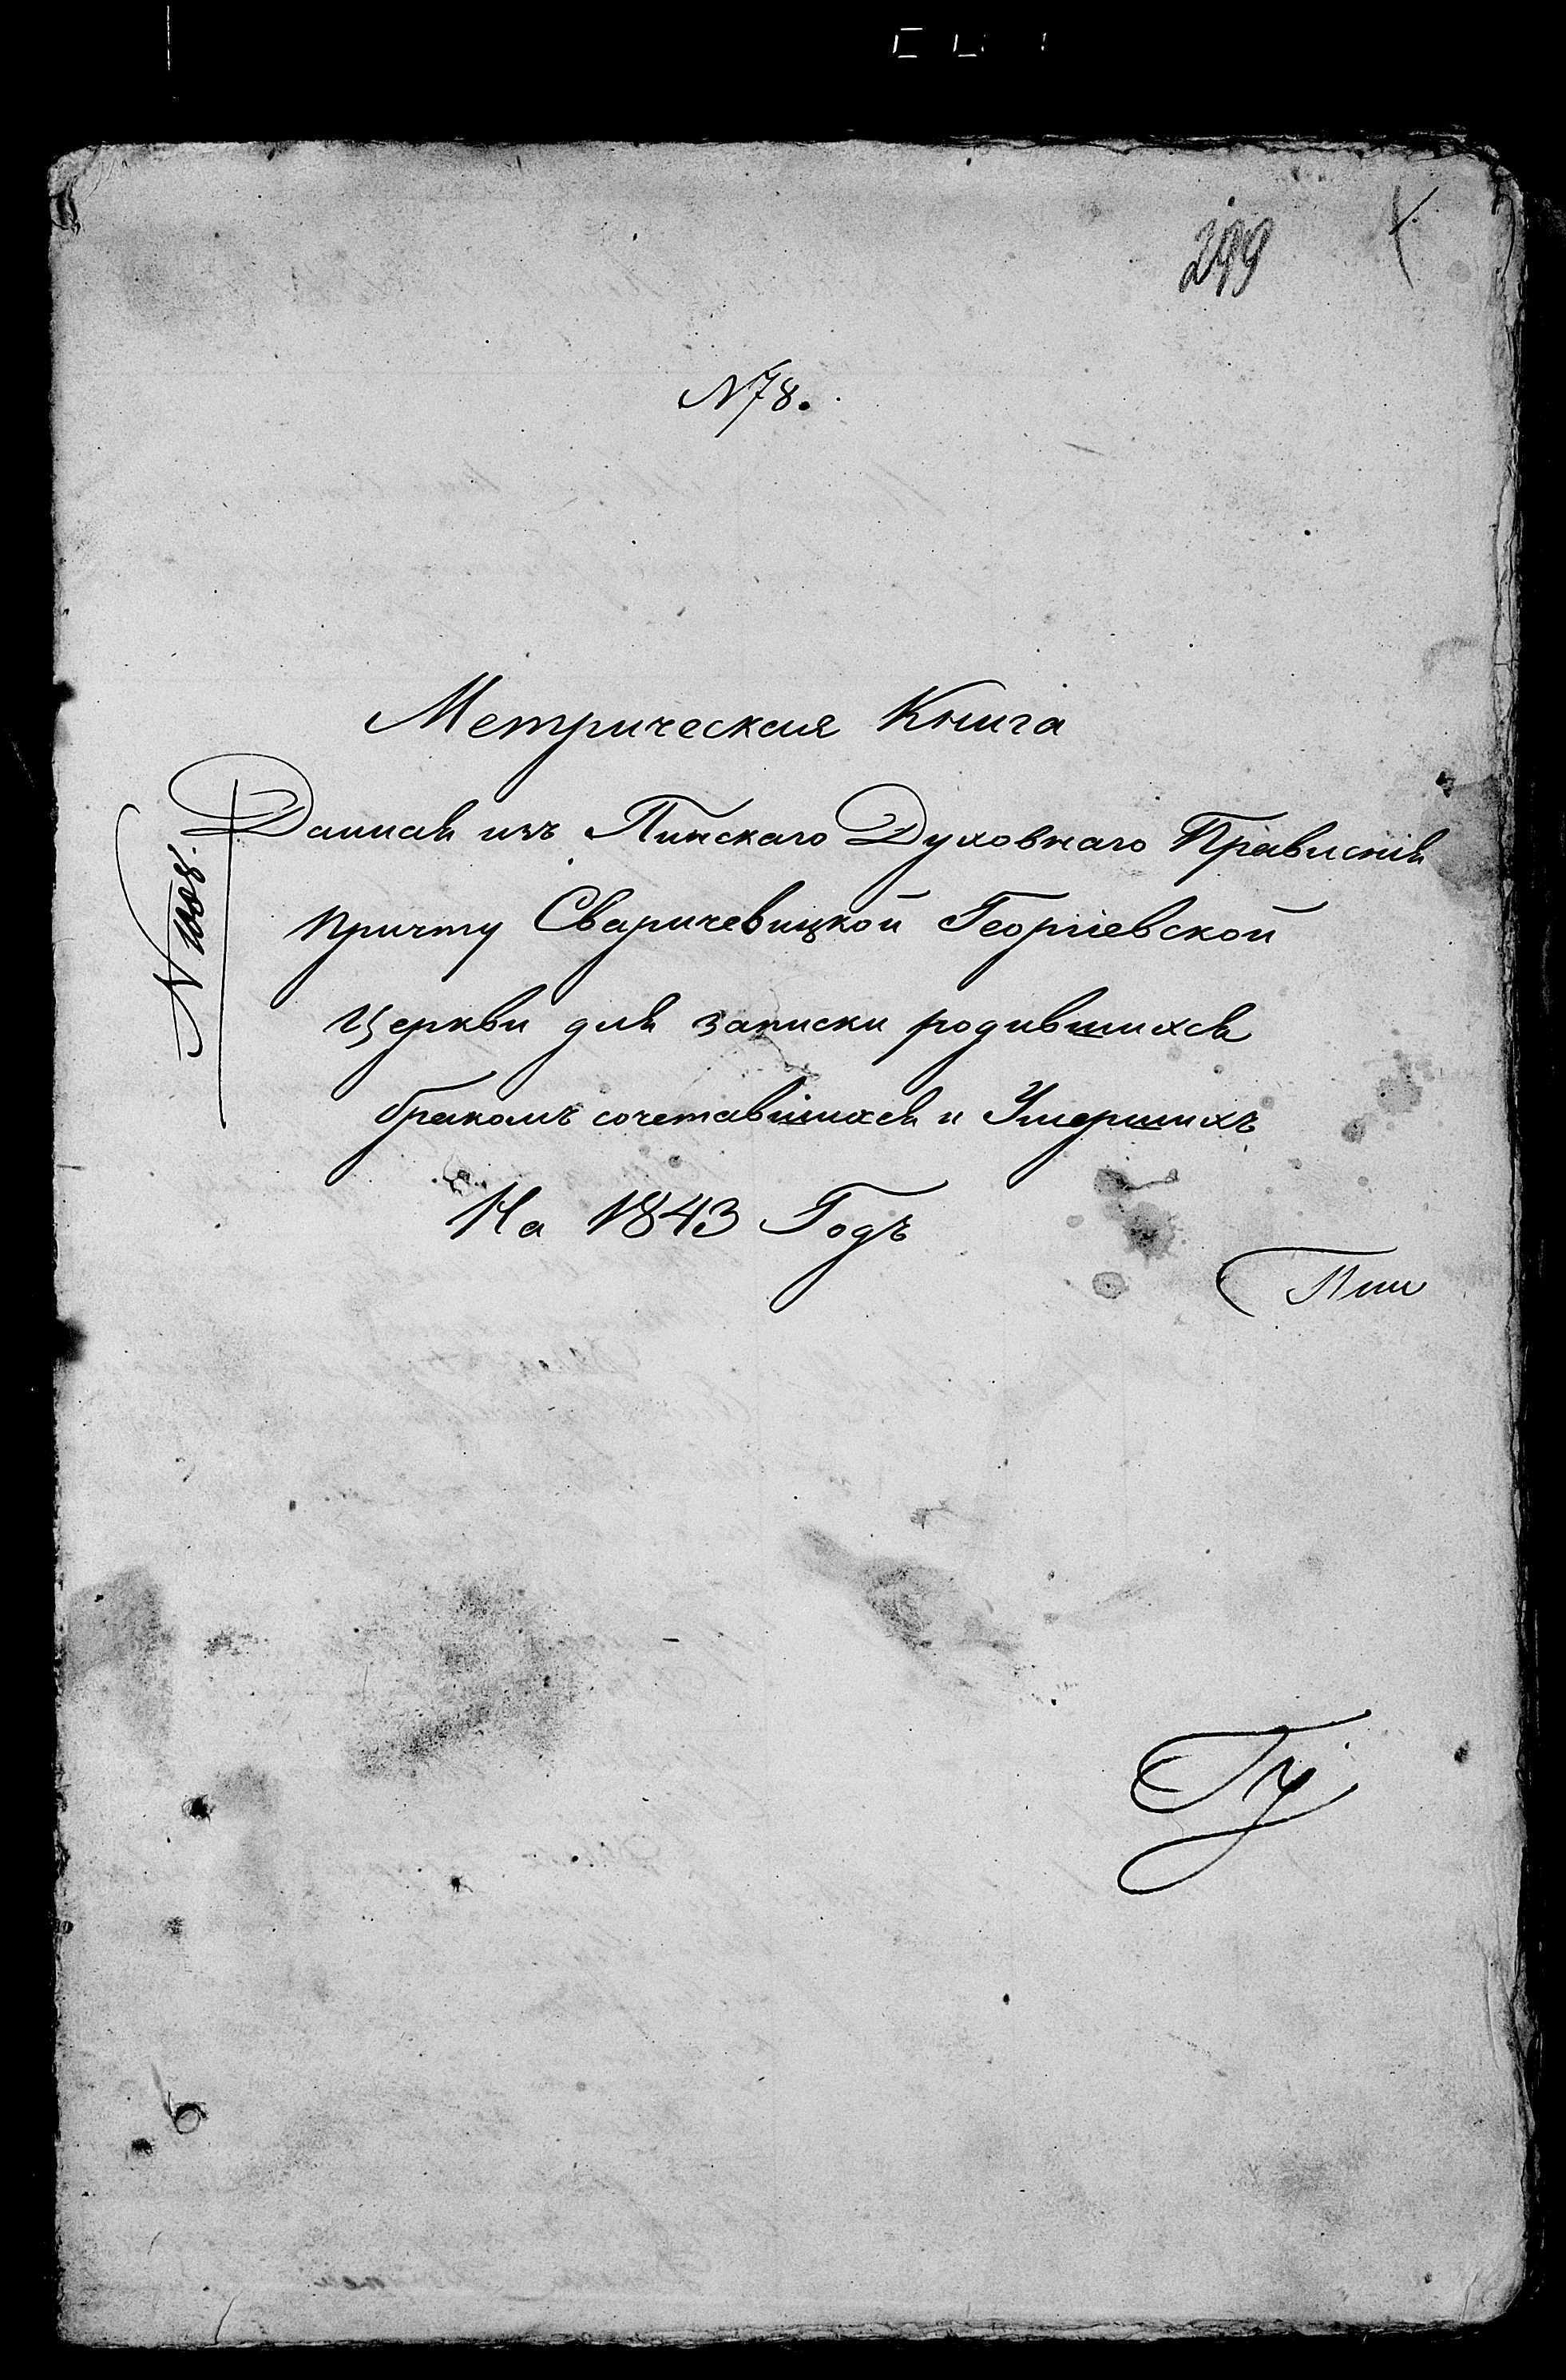 299
N 78.
Метрическая Книга
Данная изъ Пинскаго Духовнаго Правленія
причту Сваричевицкой Георгіевской
Церкви для записки родившихся
бракомъ сочетавшихся и Умершихъ
На 1843 Годъ
N 1008.